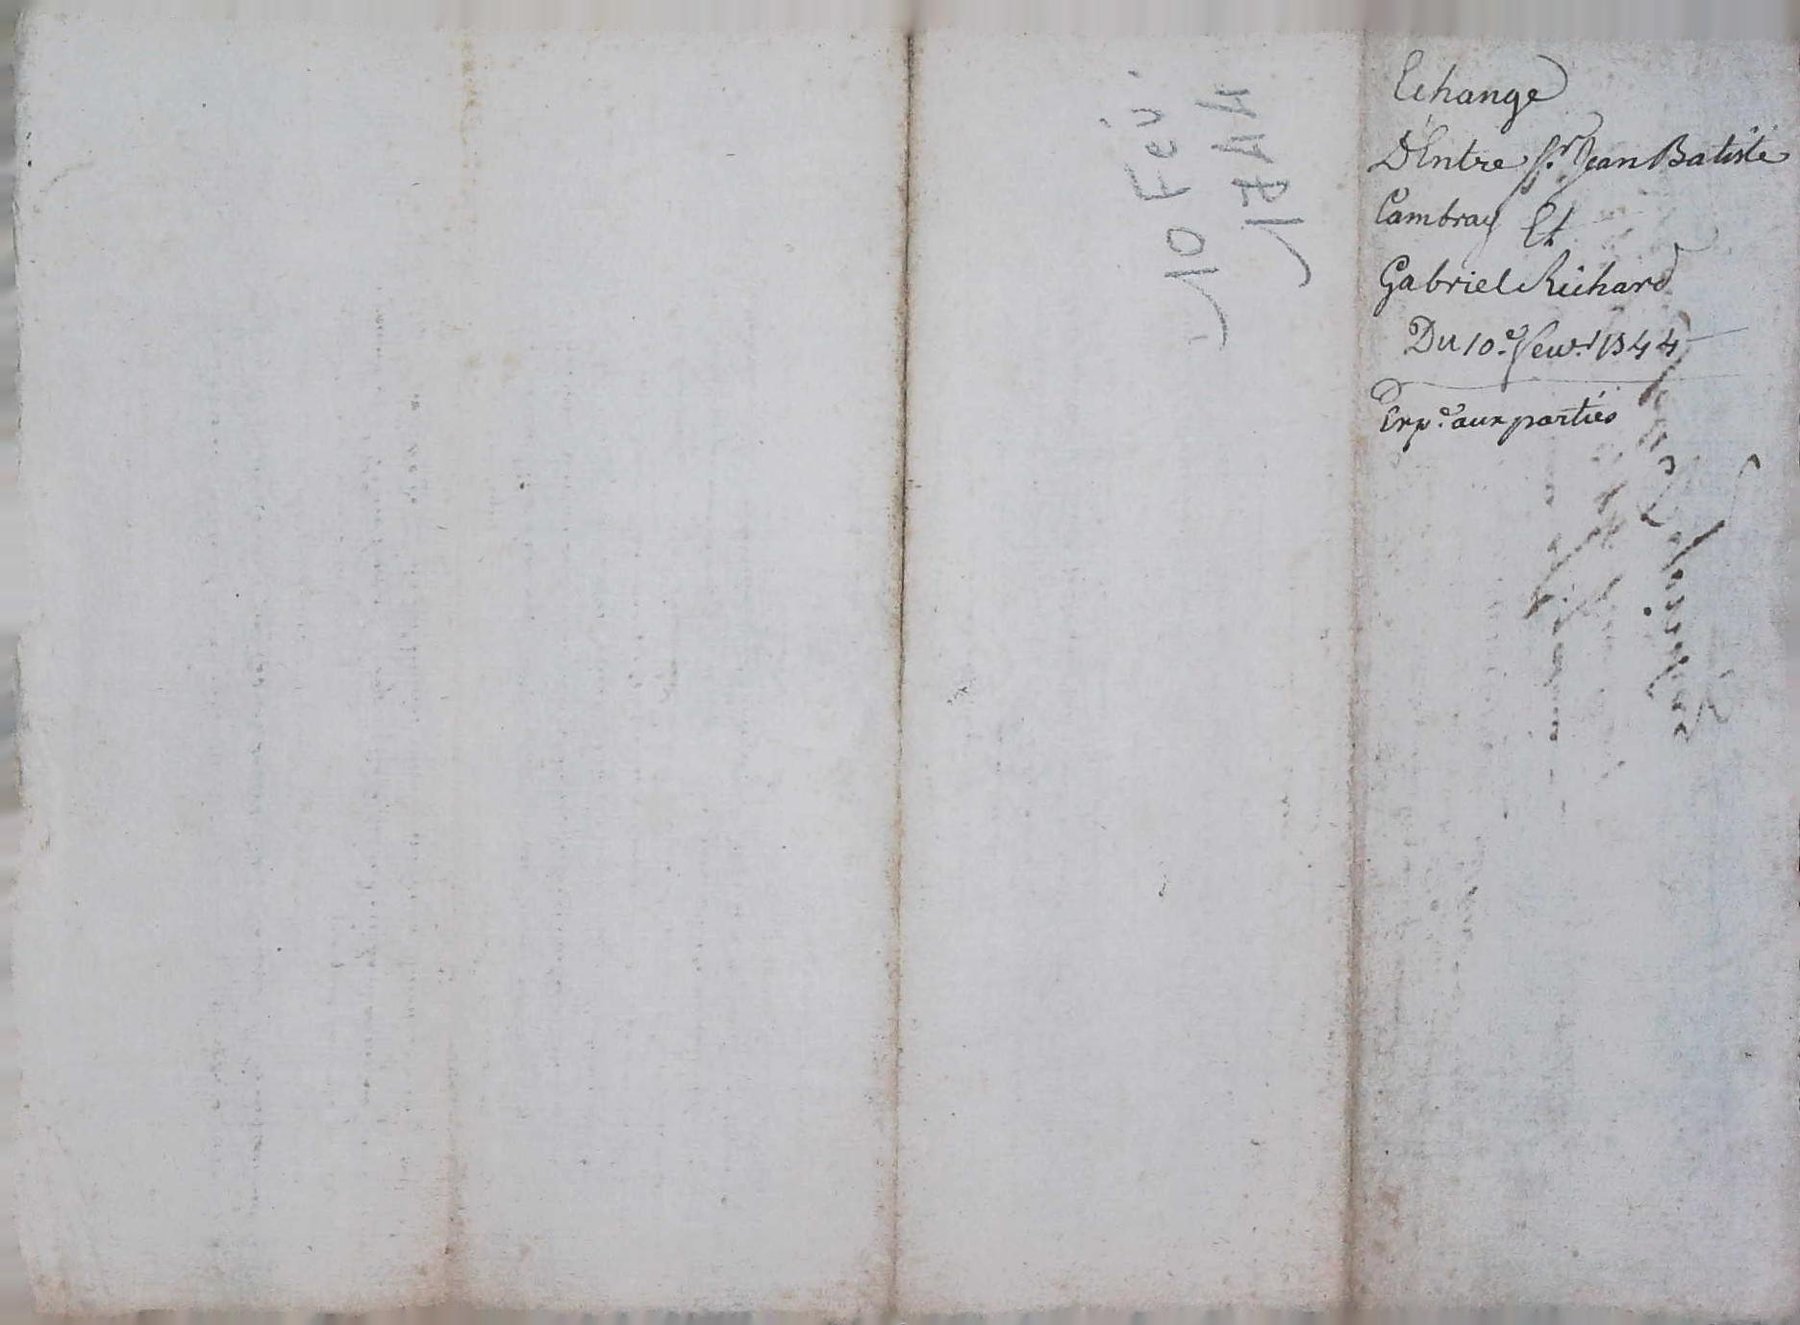 Echange
D'Entre Sr. Jean Batiste
Cambray Et
Gabriel Richard
Du 10e. fevr. 1744
Exp.e aux parties
10 Fév.
1744